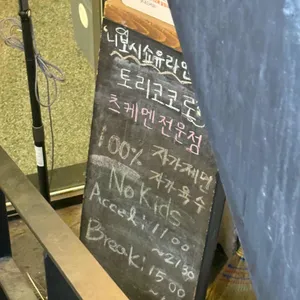 니보시쇼유라멘
토리코코로
츠케멘전문점
100% 자가제면
자가육수
No Kids
11:00
~ 21:30
Break: 15:00